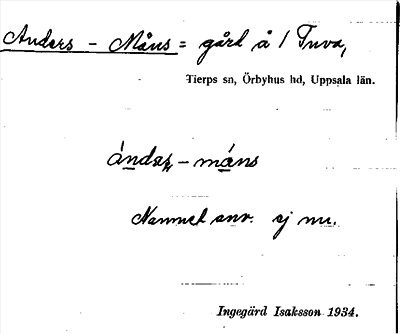 Anders - Måns = gård å / Tuva,
Tierps sn, Örbyhus hd, Uppsala län.
ándaṣ - máns
Namnet anv. ej nu.
Ingegärd Isaksson 1934.